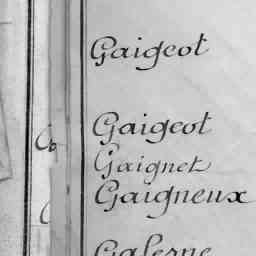 Gaigeot
Gaigeot
Gaignet
Gaigneux
Galerne